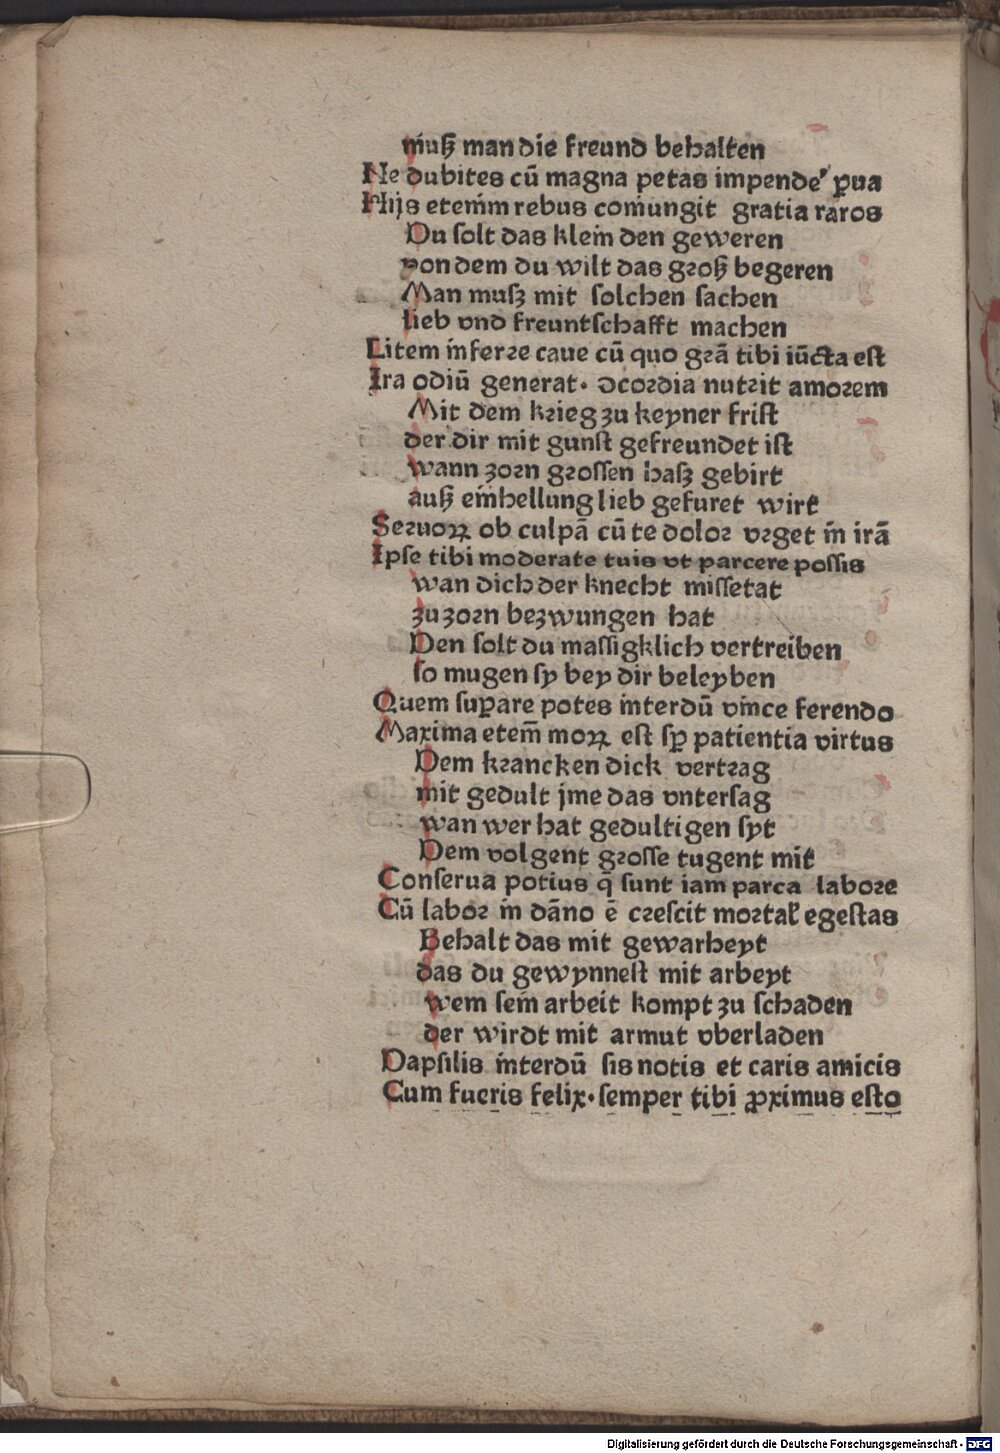 muß man die freund behalten
Ne dubites cū magna petas impende' ꝑua
Hijs eteım̄ rebus coniungit gratia raros
Du ſolt das kleın̄ den geweren
von dem du wilt das groß begeren
Man muſz mit ſolchen ſachen
lieb vnd freuntſchafft machen
Litem inferꝛe caue cū quo grā tibi iūcta eſt
Ira odiū generat. ꝯcoꝛdia nutꝛit amoꝛem
Mit dem kꝛieg zu keyner friſt
der dir mit gunſt gefreundet iſt
wann zoꝛn gꝛoſſen haſz gebirt
auß einhellung lieb gefuret wirt
Seꝛuoꝝ ob culpā cū te doloꝛ vꝛget in irā
Ipſe tibi moderate tuis vt parcere poſſis
wan dich der knecht miſſetat
zu zoꝛn bezwungen hat
Den ſolt du maſſigklich vertreiben
ſo mugen ſy bey dir beleyben
Quem ſuꝑare potes interdū vince ferendo
Maxima etem̄ moꝝ eſt ſꝑ patientia virtus
Dem kꝛancken dick vertꝛag
mit gedult jme das vnterſag
wan wer hat gedultigen ſyt
Dem volgent gꝛoſſe tugent mit
Conſerua potius q̄ ſunt iam parca laboꝛe
Cū laboꝛ in dāno ē cꝛeſcit moꝛtal' egeſtas
Behalt das mit gewarheyt
das du gewynneſt mit arbeyt
wem ſein arbeit kompt zu ſchaden
der wirdt mit armut vberladen
Dapſilis interdū ſis notis et caris amicis
Cum fueris felix. ſemper tibi ꝓximus eſto
Digitalisierung gefördert durch die Deutsche Forschungsgemeinschaft - DFG